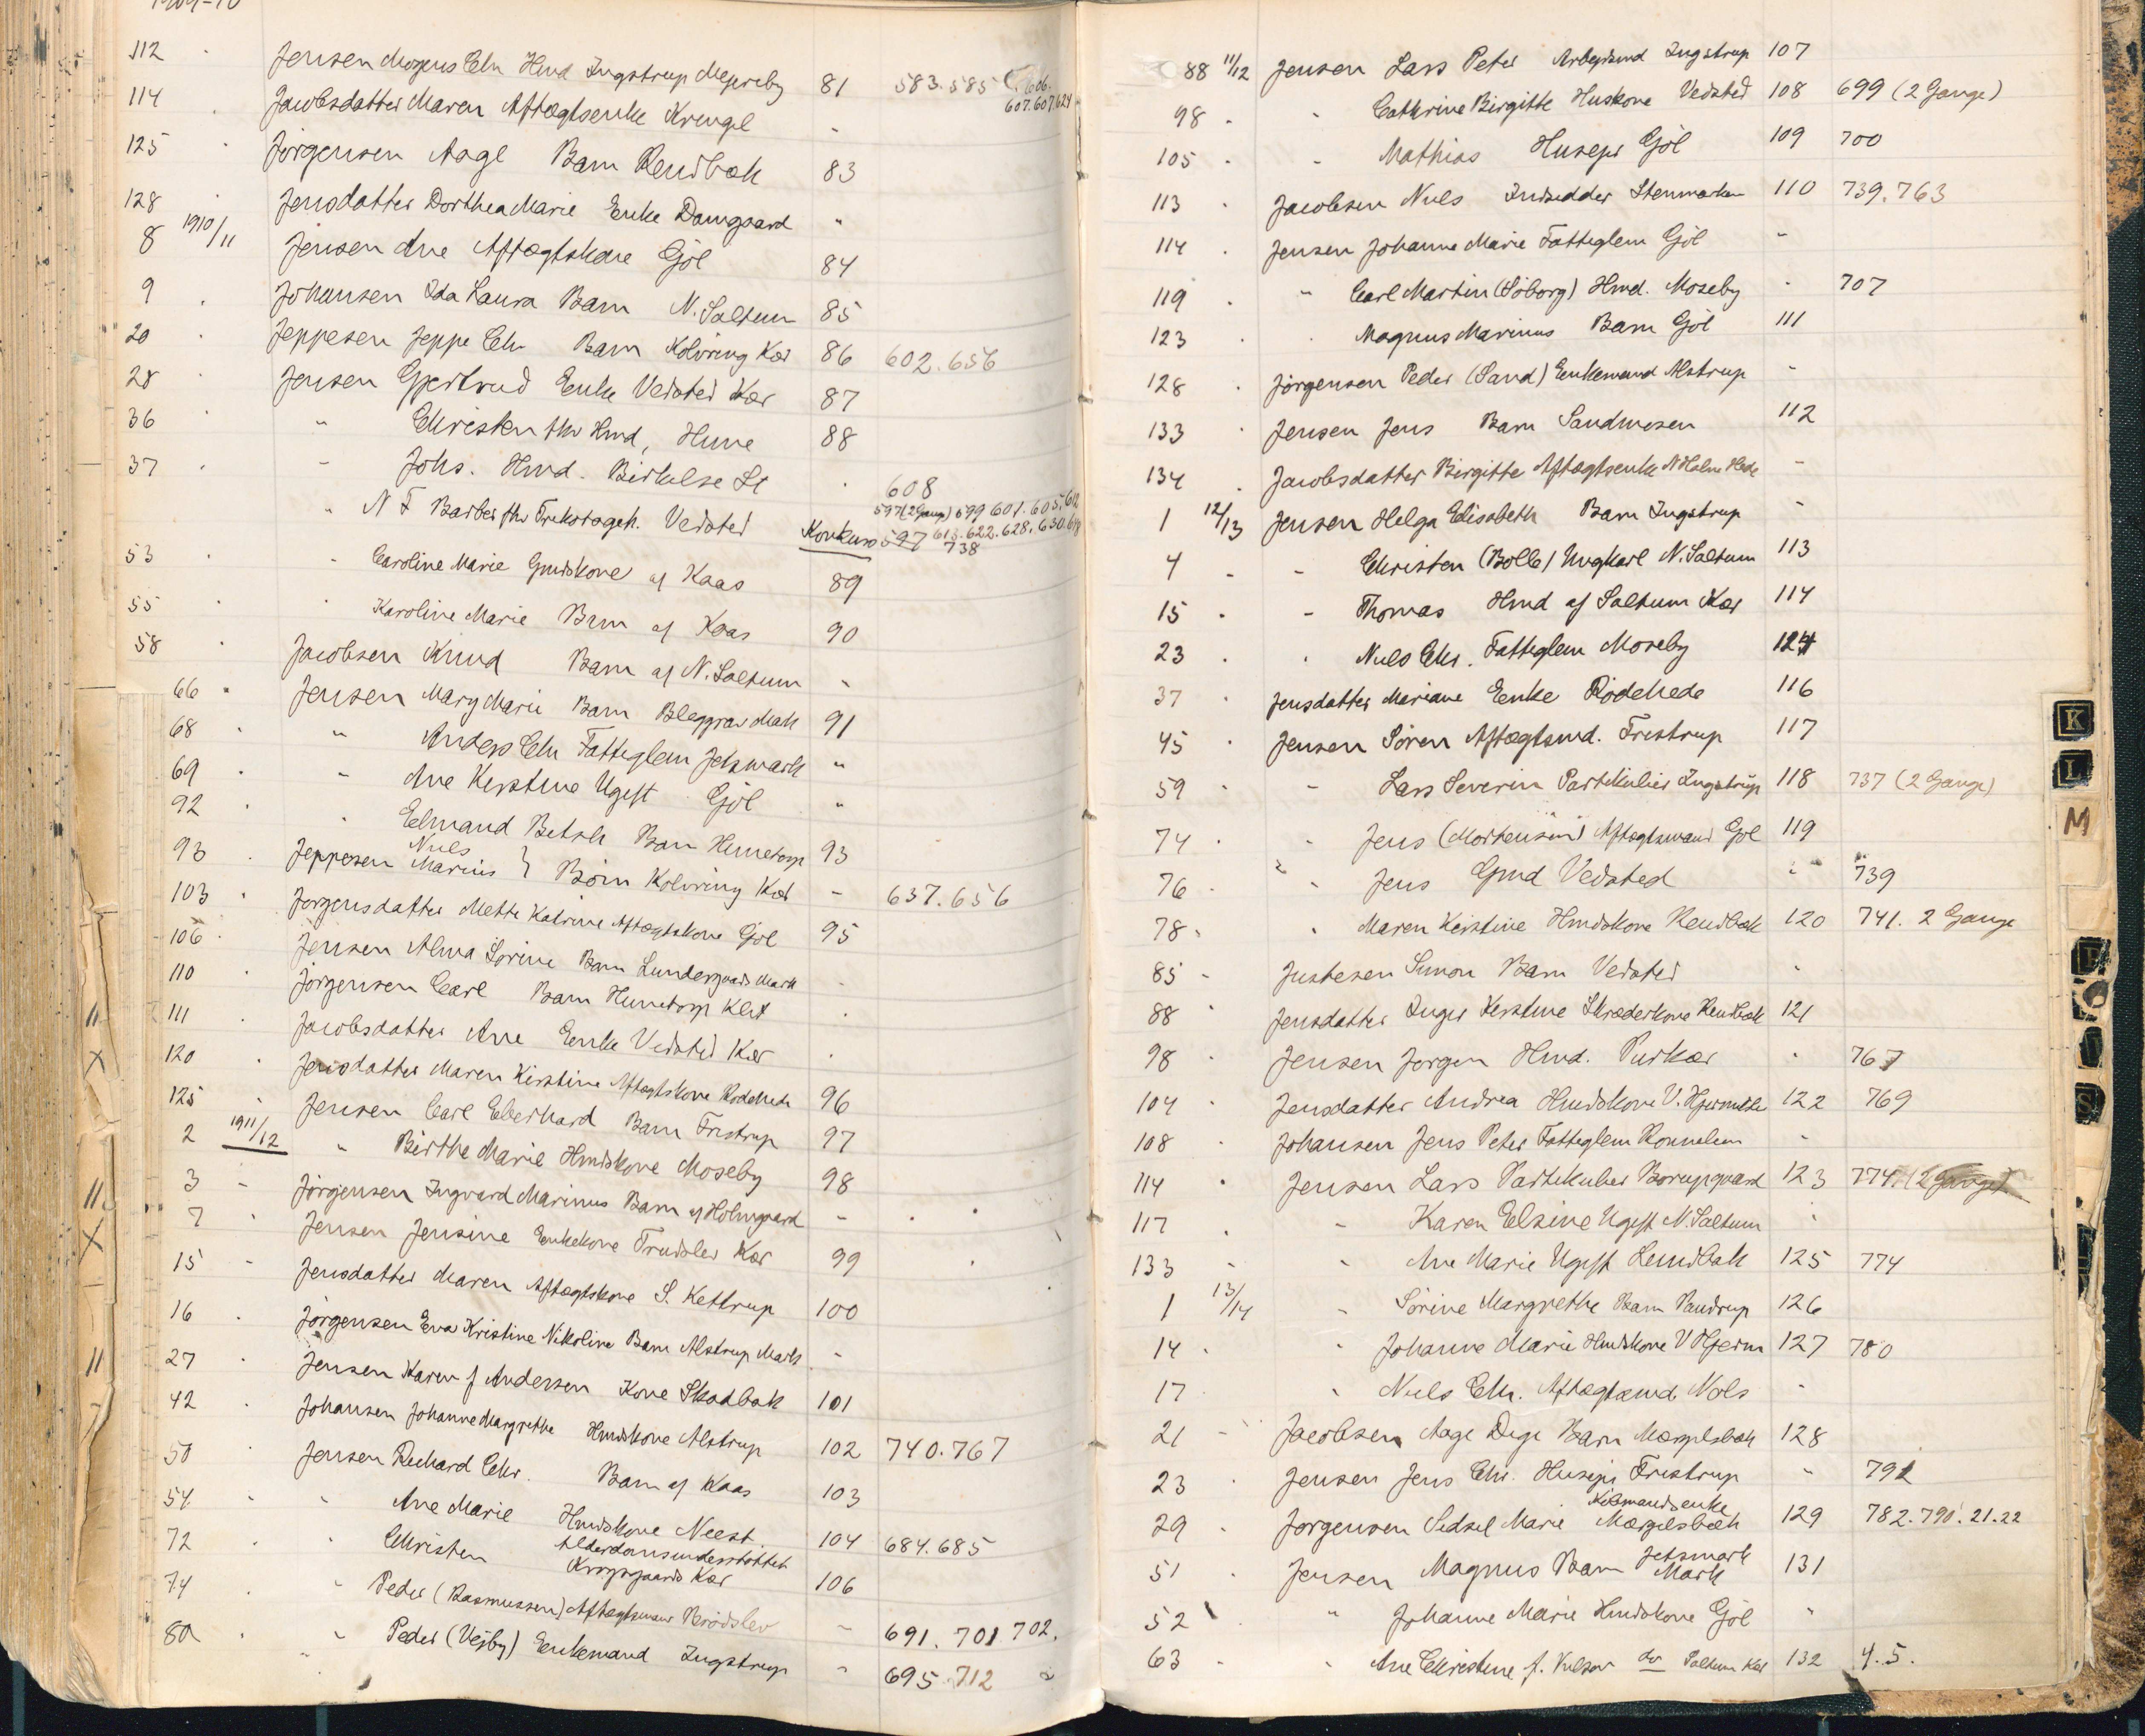 1909-10
112 Jensen Mogens Chr Hmd Ingstrup Mejreby 81 583.585 606.
607.607.624
114 Jacobsdatter Maren Aftægtsenke Krengel "
125 Jörgensen Aage Barn Rendbæk 83
128 Jensdatter Dorthea Marie Enke Damgaard "
8 1910/11 Jensen Ane Aftægtskone Gjöl 84
9 Johansen Ida Laura Barn N. Saltum 85
20 Jeppesen Jeppe Chr Barn Kolvring Kær 86 602.656
28 Jensen Gjertrud Enke Vedsted Kær 87
36 " Christen fhv Hmd, Hune 88
37 " Johs. Hmd. Birkelse St " 608
597(2 Gange) 599 601.605.612
" N F Barber fhv Trikotageh. Vedsted Konkurs 597 613.622.628.630.
738
53 " Caroline Marie Gmdskone af Kaas 89
55 " Karoline Marie Barn af Kaas 90
58 Jacobsen Knud Barn af N. Saltum "
66 Jensen Mary Marie Barn Bleggrav Mark 91
68 " Anders Chr Fattiglem Jetsmark "
69 " Ane Kirstine Ugift Gjöl "
92 " Edmand Barn Hunetorp 93
93 Jeppesen Niels Marius } Börn Kolvring Kær " 637.656
103 Jörgensdatter Mette Katrine Aftægtskone Gjöl 95
106 Jensen Alma Sörine Barn Lundergaards Mark "
110 Jörgensen Carl Barn Hunetorp Klit "
111 Jacobsdatter Ane Enke Vedsted Kær "
120 Jensdatter Maren Kirstine Aftægtskone Rödehede 96
125 Jensen Carl Eberhard Barn Fristrup 97
2 1911/12 " Birthe Marie Hmdskone Moseby 98
3 Jörgensen Ingvard Marinus Barn af Holmgaard "
7 Jensen Jensine Enkekone Trudslev Kær 99
15 Jensdatter Maren Aftægtskone S. Kettrup 100
16 Jörgensen Eva Kristine Nikoline Barn Alstrup Mark "
27 Jensen Karen f Andersen Kone Skovbæk 101
42 Johansen Johanne Margrethe Hmdskone Alstrup 102 740.767
50 Jensen Richard Chr. Barn af Kaas 103
54 " Ane Marie Hmdskone Neest 104 684.685
72 " Christen Alderdomsunderstöttet Krogsgaards Kær 106
74 " Peder (Rasmussen) Aftægtsmand Brödslev " 691.701 702.
80 " Peder (Vejby) Enkemand Ingstrup " 695.712
88 11/12 Jensen Lars Peter Arbejdsmd Ingstrup 107
98 " Cathrine Birgitte Huskone Vedsted 108 699 (2 Gange)
105 " Mathias Husejer Gjöl 109 700
113 Jacobsen Niels Indsidder Stenmarken 110 739.763
114 Jensen Johanne Marie Fattiglem Gjöl "
119 " Carl Martin (Söborg) Hmd. Moseby " 707
123 " Magnus Marinus Barn Gjöl 111
128 Jörgensen Peder (Sand) Enkemand Alstrup "
133 Jensen Jens Barn Sandmosen 112
134 Jacobsdatter Birgitte Aftægtsenke N Holme Hede "
1 12/13 Jensen Helga Elisabeth Barn Ingstrup "
4 " Christen (Bolle) Ungkarl N. Saltum 113
15 " Thomas Hmd af Saltum Kær 114
23 " Niels Chr. Fattiglem Moseby 124
37 Jensdatter Mariane Enke Rödehede 116
45 Jensen Sören Aftægtsmd. Fristrup 117
59 " Lars Severin Partikulier Ingstrup 118 737 (2 Gange)
74 " Jens (Mortensen) Aftægtsmand Gjöl 119
76 " Jens Gmd Vedsted " 739
78 " Maren Kirstine Hmdskone Rendbæk 120 741. 2 Gange
85 Justesen Simon Barn Vedsted "
88 Jensdatter Inger Kirstine Skræderkone Rendbæk 121
98 Jensen Jörgen Hmd. Purkær " 767
104 Jensdatter Andrea Hmdskone V. Hjermitslev 122 769
108 Johansen Jens Peter Fattiglem Ronnelen "
114 Jensen Lars Partikulier Borupgaard 123 774. (2 Gange)
117 " Karen Elsine Ugift N. Saltum "
133 " Ane Marie Ugift Lundbæk 125 774
1 13/14 " Sörine Margrethe Barn Pandrup 126
14 " Johanne Marie Hmdskone V Hjerm 127 780
17 " Niels Chr. Aftægtsmd. Nols "
21 Jacobsen Aage Dige Barn Mærgelsbæk 128
23 Jensen Jens Chr. Husejer Fristrup " 791
Købmandsenke
29 Jörgensen Sidsel Marie Mærgelsbæk 129 782.790.21.22
51 Jensen Magnus Barn Jetsmark Mark 131
52 " Johanne Marie Hmdskone Gjöl "
63 " Ane Christine f. do Saltum Kær 132 4.5.
K
L
M
S